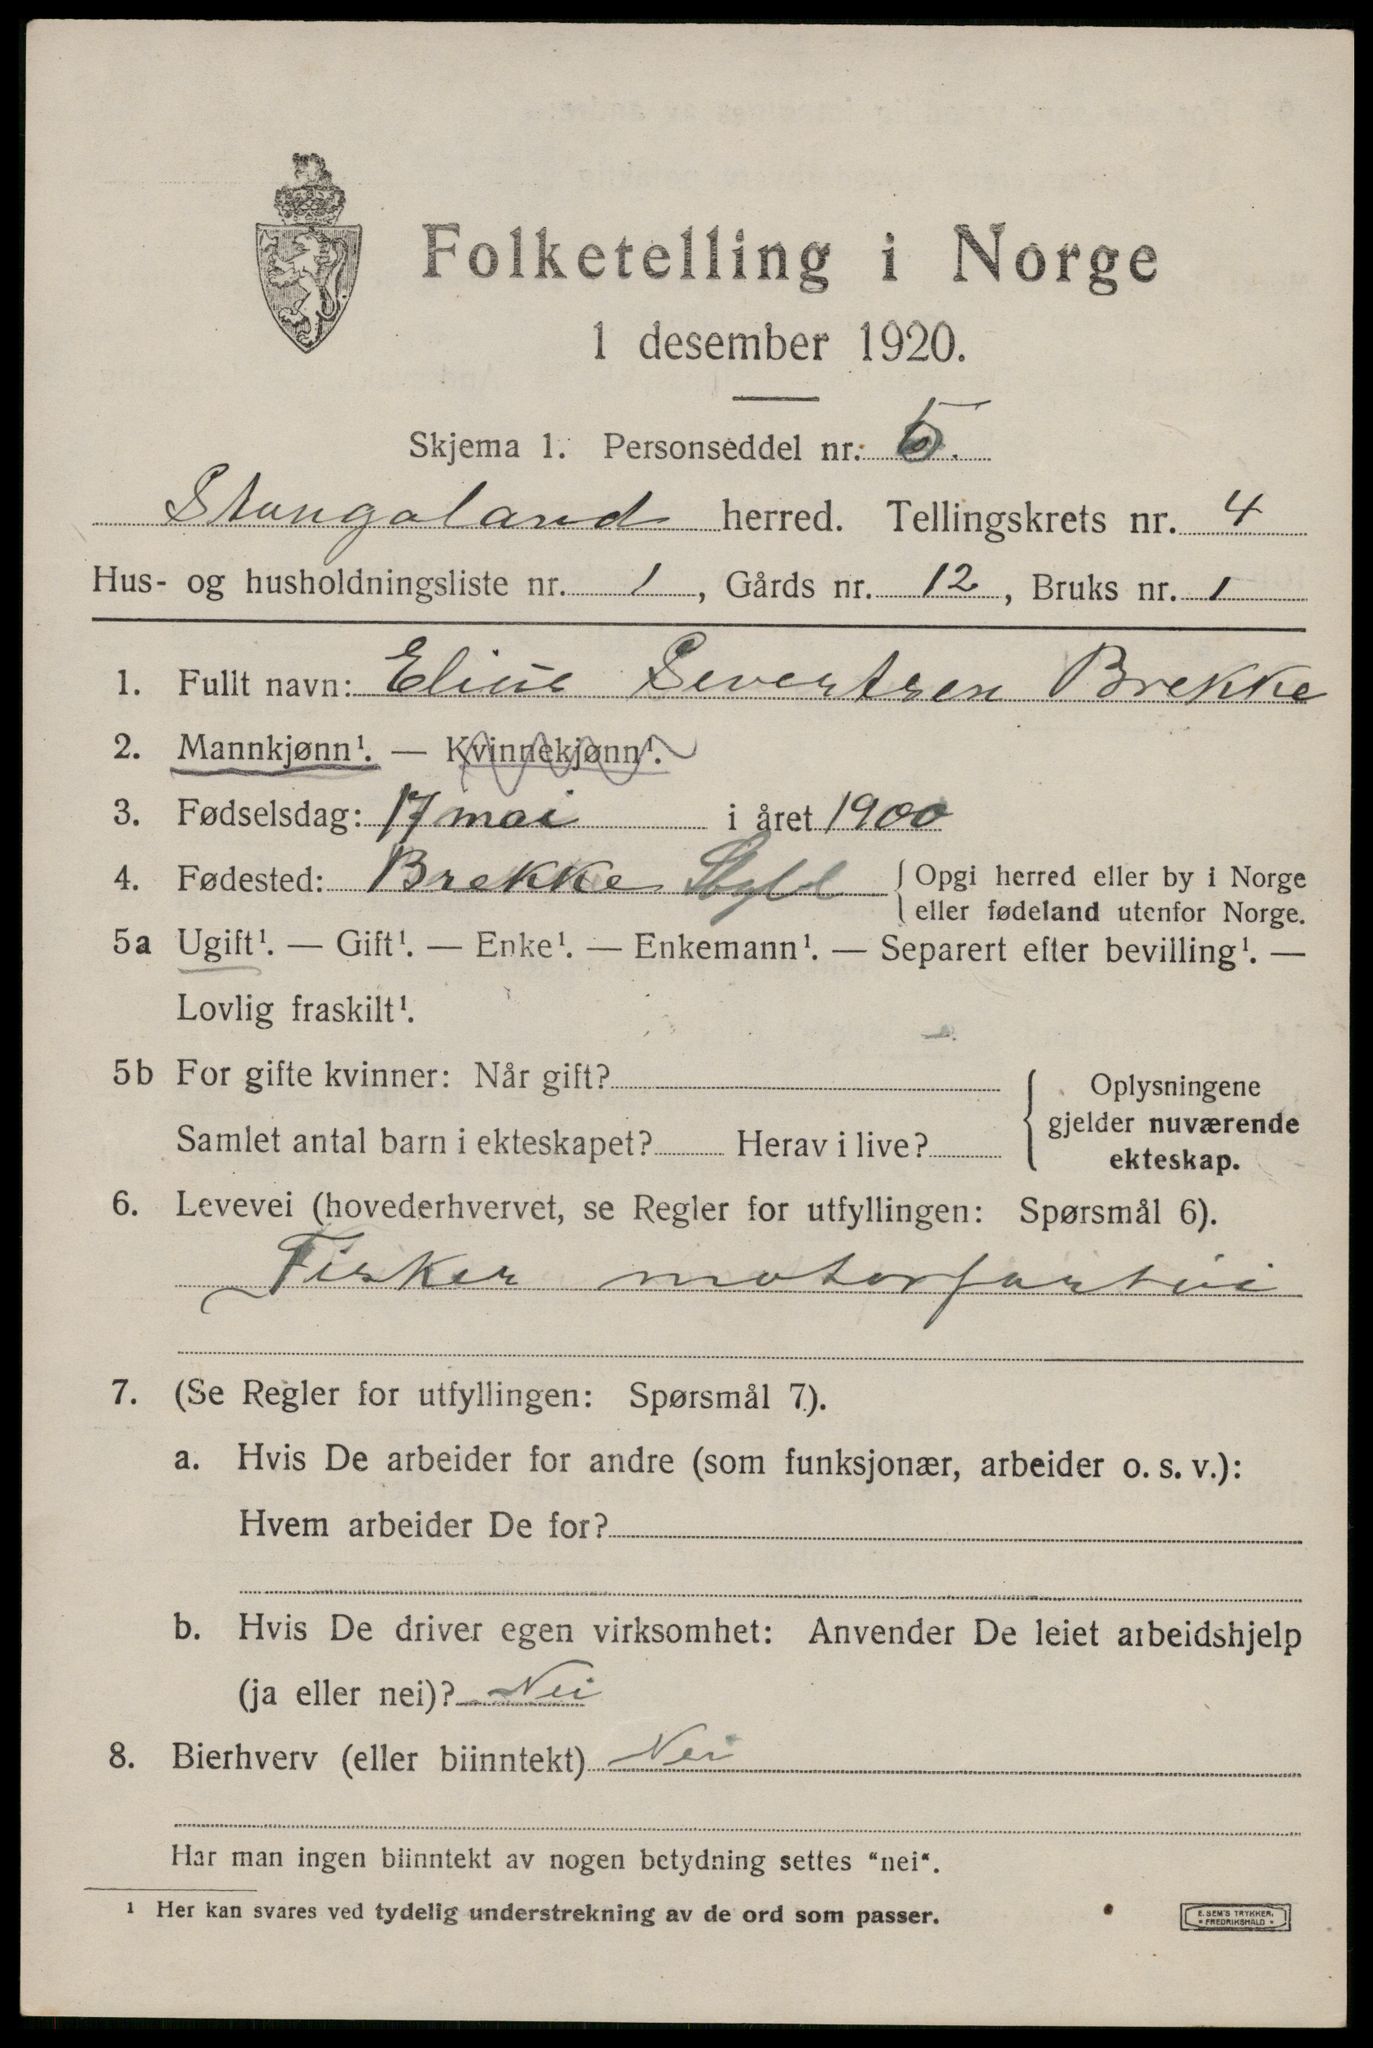 Folketelling i Norge
1 desember 1920.
Skjema 1. Personseddel nr. 5.
Stangaland herred. Tellingskrets nr. 4
Hus- og husholdningsliste nr. 1, Gårds nr. 12, Bruks nr. 1
1. Fullt navn: Severtsen Brekke
2. Mannkjønn¹. — Kvinnekjønn¹.
3. Fødselsdag: 17 mai i året 1900
4. Fødested: Brekke
Opgi herred eller by i Norge
eller fødeland utenfor Norge.
5a Ugift¹. — Gift¹. — Enke¹. — Enkemann¹. — Separert efter bevilling¹. —
Lovlig fraskilt¹.
5b For gifte kvinner: Når gift?
Samlet antal barn i ekteskapet? Herav i live?
Oplysningene
gjelder nuværende
ekteskap.
6. Levevei (hovederhvervet, se Regler for utfyllingen: Spørsmål 6).
Fisker motorfartøi
7. (Se Regler for utfyllingen: Spørsmål 7).
a. Hvis De arbeider for andre (som funksjonær, arbeider o. s. v.):
Hvem arbeider De for?
b. Hvis De driver egen virksomhet: Anvender De leiet arbeidshjelp
(ja eller nei)? Nei
8. Bierhverv (eller biinntekt) Nei
Har man ingen biinntekt av nogen betydning settes "nei".
¹ Her kan svares ved tydelig understrekning av de ord som passer.
E. SEM'S TRYKKERI,
FREDRIKSHALD